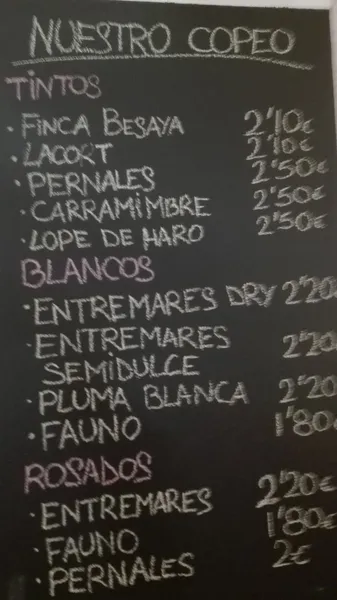 NUESTRO COPEO
TINTOS
· FINCA BESAYA 2'10€
· LACORT 2'10€
· PERNALES 2'50€
· CARRAMIMBRE 2'50€
· LOPE DE HARO 2'50€
BLANCOS
· ENTREMARES DRY 2'20€
· ENTREMARES
SEMIDULCE 2'20
· PLUMA BLANCA 2'20
· FAUNO 1'80€
ROSADOS
· ENTREMARES 2'20€
· FAUNO 1'80€
· PERNALES 2€